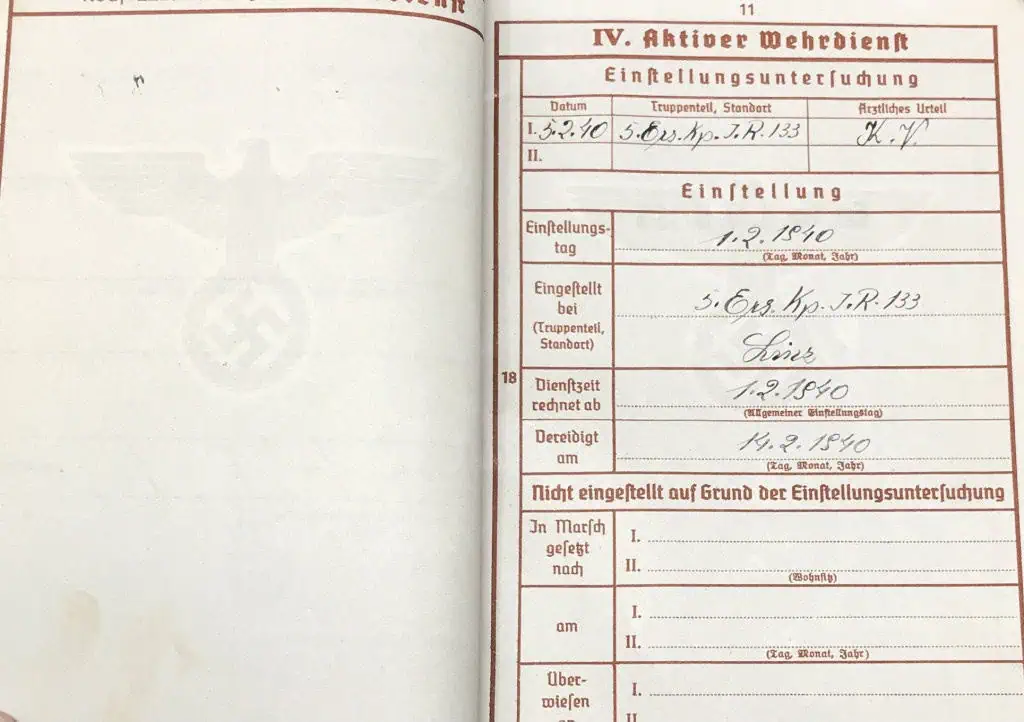 11
IV. Aktiver Wehrdienst
Einstellungsuntersuchung
Datum Truppenteil, Standort Ärztliches Urteil
I. 5.2.40 5. Ers. Kp. I.R. 133 K.V.
II.
Einstellung
Einstellungs-
tag
1.2.1940
(Tag, Monat, Jahr)
Eingestellt
bei
(Truppenteil,
Standort)
5. Ers. Kp. I.R. 133
Linz
18
Dienstzeit
rechnet ab
1.2.1940
(Allgemeiner Einstellungstag)
Vereidigt
am
14.2.1940
(Tag, Monat, Jahr)
Nicht eingestellt auf Grund der Einstellungsuntersuchung
In Marsch
gesetzt
nach
I.
II.
(Wohnsitz)
am
I.
II.
(Tag, Monat, Jahr)
Über-
wiesen
I.
II.